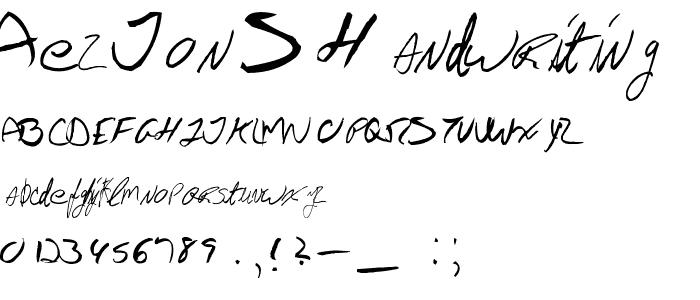 AezJonSHandwriting
ABCDEFGHIJKLMNOPQRSTUVWXYZ
ABCdefghijklMNOPQRstuvwxyz
0123456789.,!?-_:;